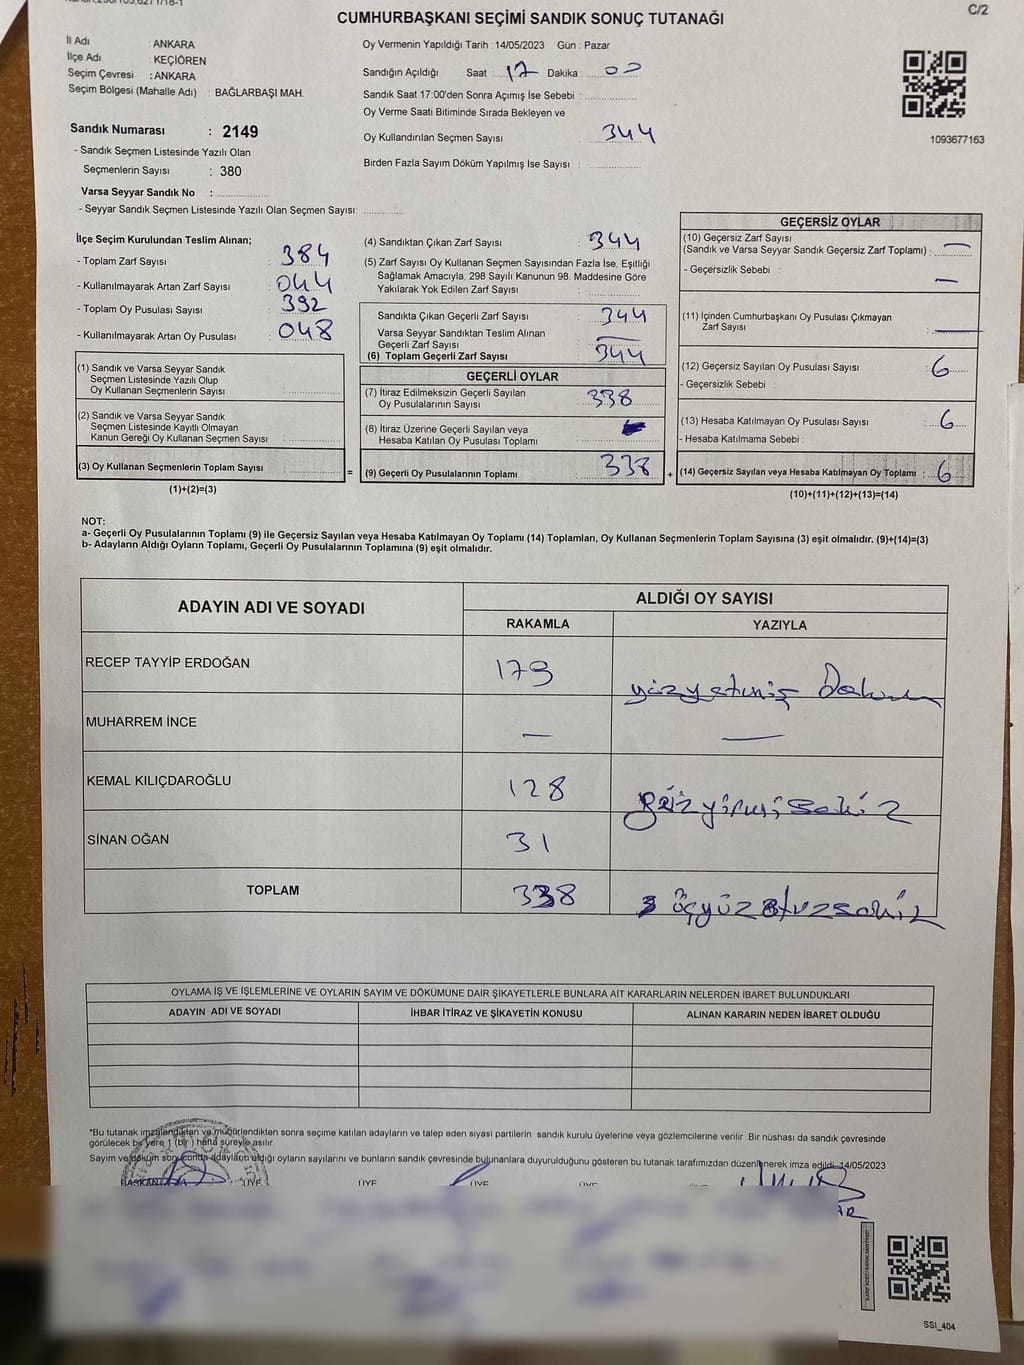 CUMHURBAŞKANI SEÇİMİ SANDIK SONUÇ TUTANAĞI
C/2
İl Adı : ANKARA
İlçe Adı : KEÇİÖREN
Seçim Çevresi : ANKARA
Seçim Bölgesi (Mahalle Adı) : BAĞLARBAŞI MAH.
Sandık Numarası : 2149
- Sandık Seçmen Listesinde Yazılı Olan
Seçmenlerin Sayısı : 380
Varsa Seyyar Sandık No :
- Seyyar Sandık Seçmen Listesinde Yazılı Olan Seçmen Sayısı:
Oy Vermenin Yapıldığı Tarih : 14/05/2023 Gün : Pazar
Sandığın Açıldığı Saat : 17 Dakika : 00
Sandık Saat 17:00'den Sonra Açımış İse Sebebi :
Oy Verme Saati Bitiminde Sırada Bekleyen ve
Oy Kullandırılan Seçmen Sayısı : 344
Birden Fazla Sayım Döküm Yapılmış İse Sayısı :
1093677163
İlçe Seçim Kurulundan Teslim Alınan;
- Toplam Zarf Sayısı : 384
- Kullanılmayarak Artan Zarf Sayısı : 044
- Toplam Oy Pusulası Sayısı : 392
- Kullanılmayarak Artan Oy Pusulası : 048
(1) Sandık ve Varsa Seyyar Sandık
Seçmen Listesinde Yazılı Olup
Oy Kullanan Seçmenlerin Sayısı :
(2) Sandık ve Varsa Seyyar Sandık
Seçmen Listesinde Kayıtlı Olmayan
Kanun Gereği Oy Kullanan Seçmen Sayısı :
(3) Oy Kullanan Seçmenlerin Toplam Sayısı :
(1)+(2)=(3)
(4) Sandıktan Çıkan Zarf Sayısı : 344
(5) Zarf Sayısı Oy Kullanan Seçmen Sayısından Fazla İse, Eşitliği
Sağlamak Amacıyla, 298 Sayılı Kanunun 98. Maddesine Göre
Yakılarak Yok Edilen Zarf Sayısı :
Sandıkta Çıkan Geçerli Zarf Sayısı : 344
Varsa Seyyar Sandıktan Teslim Alınan
Geçerli Zarf Sayısı : —
(6) Toplam Geçerli Zarf Sayısı : 344
GEÇERLİ OYLAR
(7) İtiraz Edilmeksizin Geçerli Sayılan
Oy Pusulalarının Sayısı : 338
(8) İtiraz Üzerine Geçerli Sayılan veya
Hesaba Katılan Oy Pusulası Toplamı :
= (9) Geçerli Oy Pusulalarının Toplamı : 338 +
GEÇERSİZ OYLAR
(10) Geçersiz Zarf Sayısı
(Sandık ve Varsa Seyyar Sandık Geçersiz Zarf Toplamı) : —
- Geçersizlik Sebebi : —
(11) İçinden Cumhurbaşkanı Oy Pusulası Çıkmayan
Zarf Sayısı : —
(12) Geçersiz Sayılan Oy Pusulası Sayısı : 6
- Geçersizlik Sebebi :
(13) Hesaba Katılmayan Oy Pusulası Sayısı : 6
- Hesaba Katılmama Sebebi :
(14) Geçersiz Sayılan veya Hesaba Katılmayan Oy Toplamı : 6
(10)+(11)+(12)+(13)=(14)
NOT:
a- Geçerli Oy Pusulalarının Toplamı (9) ile Geçersiz Sayılan veya Hesaba Katılmayan Oy Toplamı (14) Toplamları, Oy Kullanan Seçmenlerin Toplam Sayısına (3) eşit olmalıdır. (9)+(14)=(3)
b- Adayların Aldığı Oyların Toplamı, Geçerli Oy Pusulalarının Toplamına (9) eşit olmalıdır.
ADAYIN ADI VE SOYADI ALDIĞI OY SAYISI
RAKAMLA YAZIYLA
RECEP TAYYİP ERDOĞAN 179 yüzyetmiş Dokuz
MUHARREM İNCE — —
KEMAL KILIÇDAROĞLU 128 yüzyirmisekiz
SİNAN OĞAN 31
TOPLAM 338 üçyüzotuzsekiz
OYLAMA İŞ VE İŞLEMLERİNE VE OYLARIN SAYIM VE DÖKÜMÜNE DAİR ŞİKAYETLERLE BUNLARA AİT KARARLARIN NELERDEN İBARET BULUNDUKLARI
ADAYIN ADI VE SOYADI İHBAR İTİRAZ VE ŞİKAYETİN KONUSU ALINAN KARARIN NEDEN İBARET OLDUĞU
*Bu tutanak imzalandıktan ve mühürlendikten sonra seçime katılan adayların ve talep eden siyasi partilerin sandık kurulu üyelerine veya gözlemcilerine verilir .Bir nüshası da sandık çevresinde
görülecek bir yere 1 (bir ) hafta süreyle asılır.
Sayım ve döküm sonucunda adayların aldığı oyların sayılarını ve bunların sandık çevresinde bulunanlara duyurulduğunu gösteren bu tutanak tarafımızdan düzenlenerek imza edildi. 14/05/2023
BAŞKAN ÜYE ÜYE ÜYE ÜYE
SSI_404